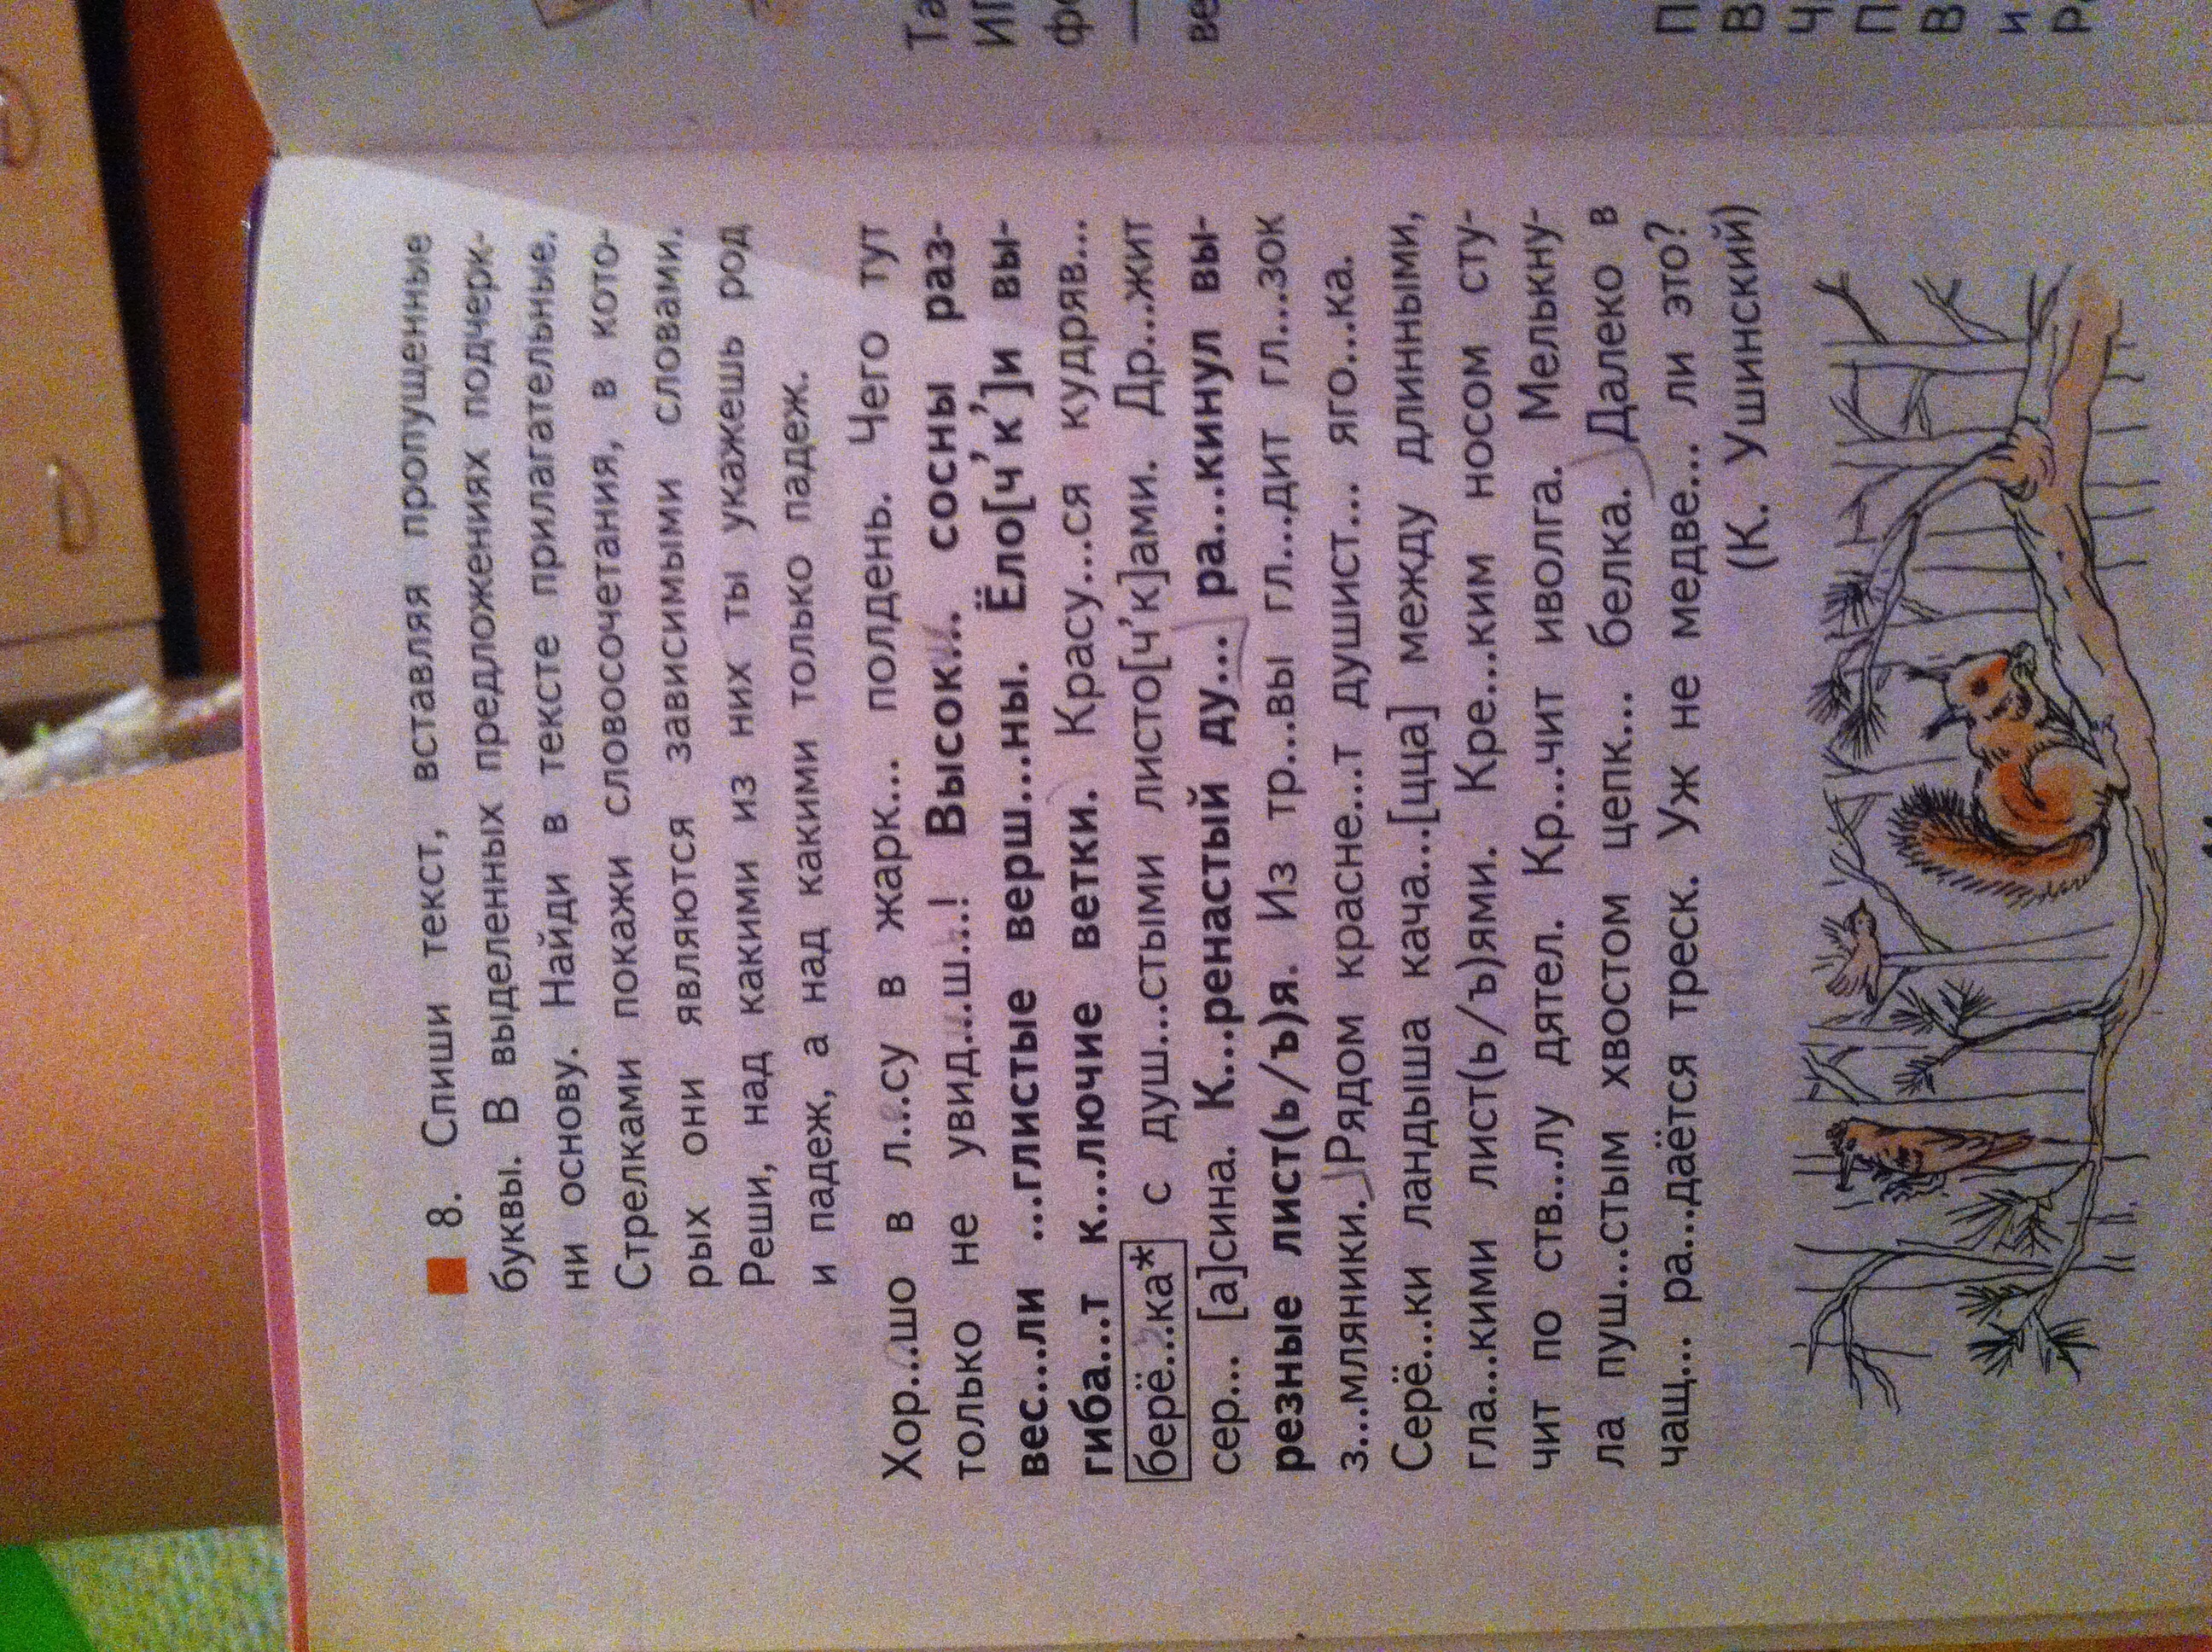 8. Спиши текст, вставляя пропущенные
буквы. В выделенных предложениях подчерк-
ни основу. Найди в тексте прилагательные.
Стрелками покажи словосочетания, в кото-
рых они являются зависимыми словами.
Реши, над какими из них ты укажешь род
и падеж, а над какими только падеж.
Хор...шо в л...су в жарк... полдень. Чего тут
только не увид...ш...! Высок... сосны раз-
вес...ли ...глистые верш...ны. Ёло[ч’к’]и вы-
гиба...т к...лючие ветки. Красу...ся кудряв...
берё...ка* с душ...стыми листо[ч’к]ами. Др...жит
сер... [а]сина. К...ренастый ду... ра...кинул вы-
резные лист(ь/ъ)я. Из тр...вы гл...дит гл...зок
з...мляники. Рядом красне...т душист... яго...ка.
Серё...ки ландыша кача...[цца] между длинными,
гла...кими лист(ь/ъ)ями. Кре...ким носом сту-
чит по ств...лу дятел. Кр...чит иволга. Мелькну-
ла пуш...стым хвостом цепк... белка. Далеко в
чащ... ра...даётся треск. Уж не медве... ли это?
(К. Ушинский)
Та
ве
П
В
Ч
П
В
и